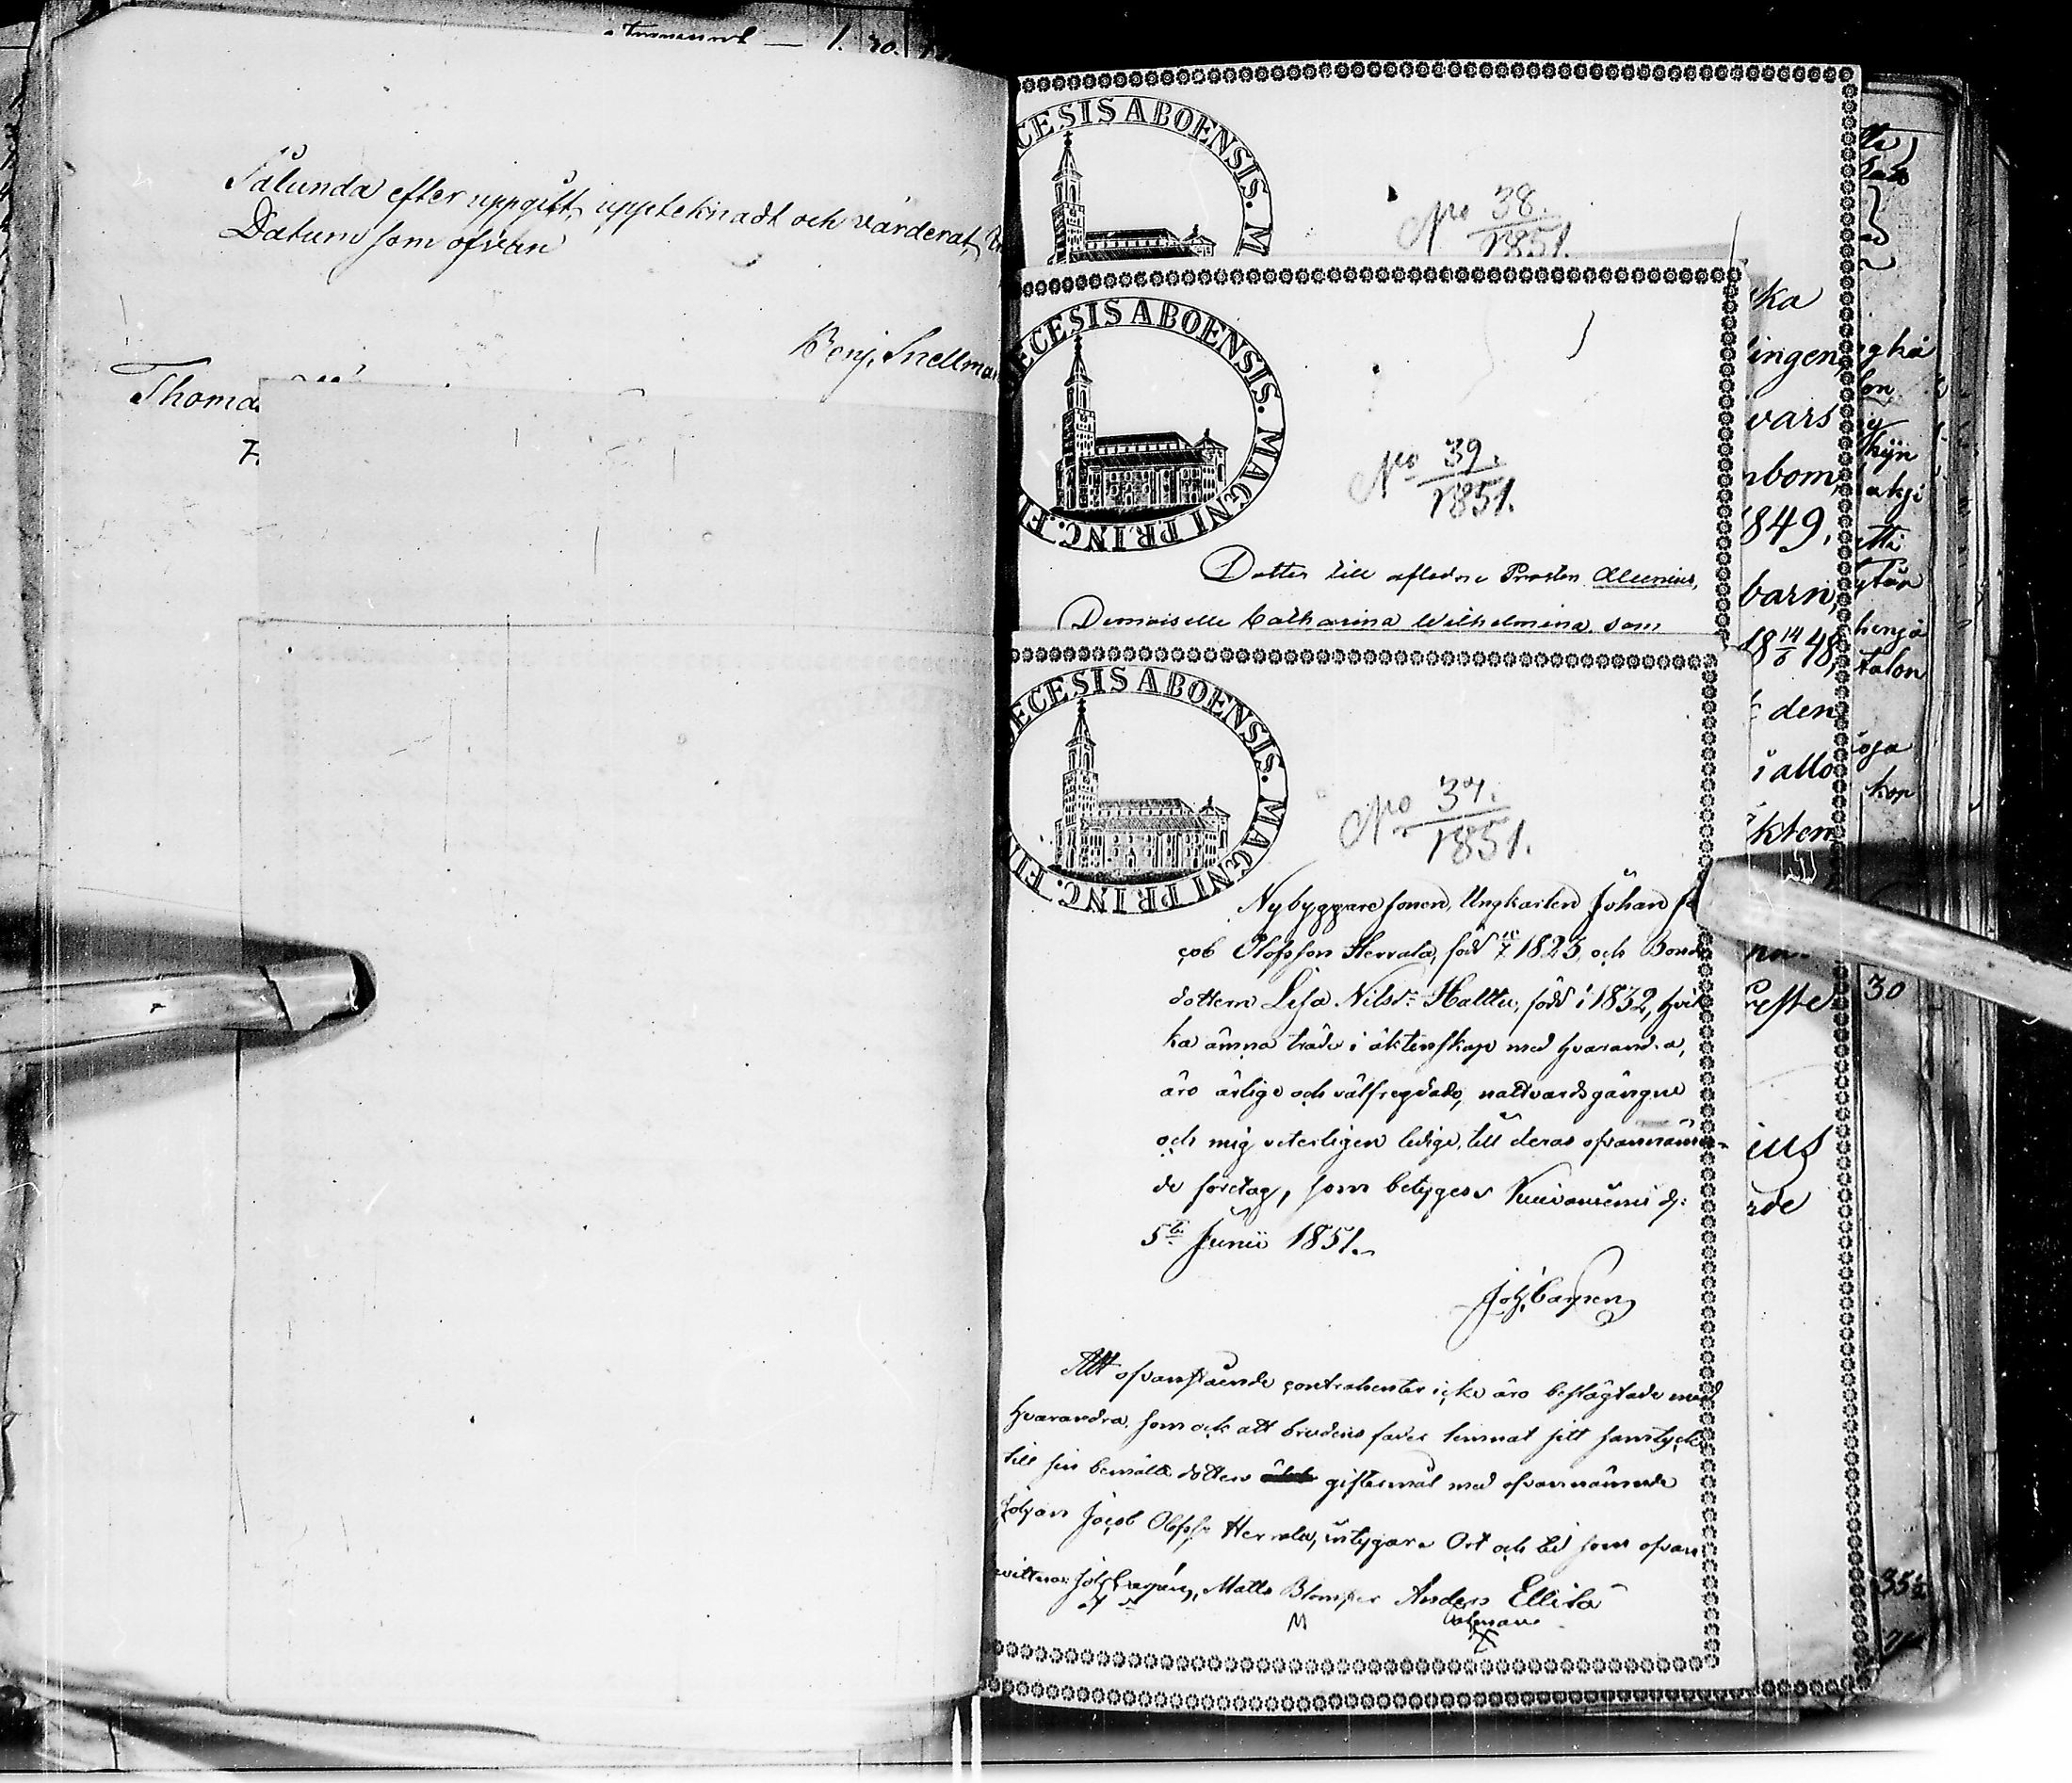 1. 20.
Sålunda efter uppgift, upptecknadt och värderat,
Datum som ofvan
Benj. Snellman
Thoma
ECESIS ABOENSIS. M
No 38.
1851.
ECESIS ABOENSIS. MAGNI PRINC. FI
No 39.
1851.
Dotter till aflidne Prosten Alcenius,
Demoiselle Catharina Wilhelmina, som
ECESIS ABOENSIS. MAGNI PRINC. FI
No 37.
1851.
Nybyggare sonen, Ungkarlen Johan Ja
cob Olofsson Herrala, född 1823, och Bonde
dottern Lisa Nilsdr Halttu, född i 1832, hvil
ka ämna träda i äktenskap med hvarandra,
äro ärlige och välfregdade, nattvardsgångne
och mig veterligen ledige, till deras ofvannämn
de företag, som betygas Kuivaniemi d.
5te Junii 1851.
Att ofvanstående contrahenter icke äro beslägtade med
hvarandra, som ock att brudens fader lemnat sitt samtycke
till sin bemälte dotters giftermål med ofvannämnde
Johan Jacob Olofss. Herrala, intygare Ort och tid som ofvan
Matts Anders Ellilä
M
ka
ingen
vars
nbom,
1849,
barn,
48,
den
i allo
kten
ius
rde
talon
30